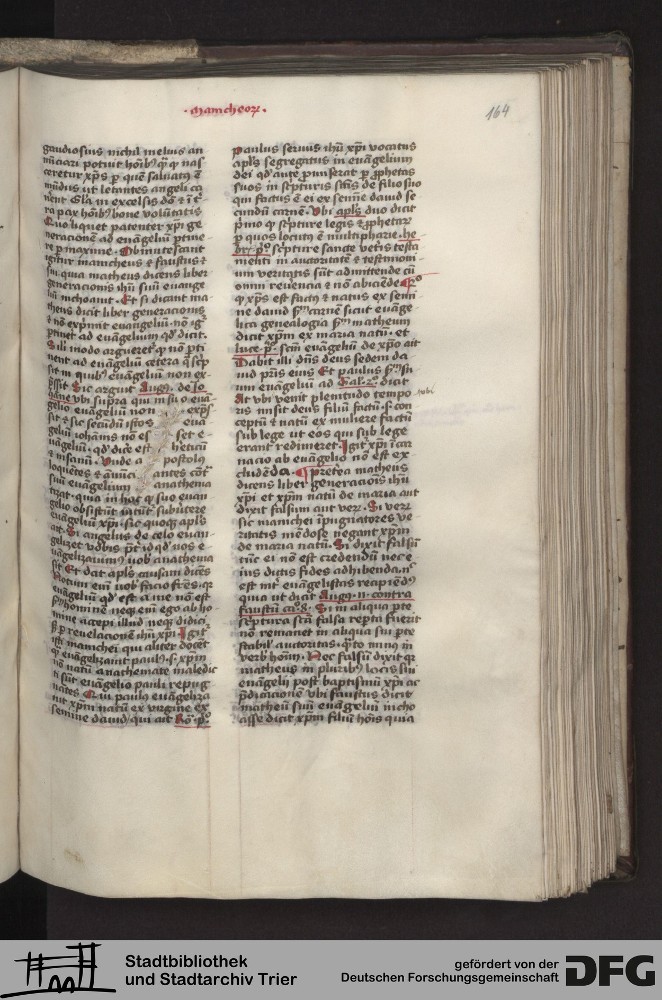 ·manicheorꝝ·
164
gaudiosius nichil melius an
nūciari potuit hōibꝰ qͥ qͦ nas
ceretur xp̄s ꝑ quē saluatꝰ ē
mūdus ut letantes angeli ca
nerent Gl̄a in excelsis dō ⁊ ī tͤ
ra pax hōibꝰ bone volūtatis
Quo liquet patenter xp̄i ge
neracionē ad euangeliū ptine
re ꝑ maxime · Obmutescant
igitur manicheus ⁊ faustus ⁊
sui quia matheus dicens liber
generacionis ihū suū euange
liū inchoauit · Et si dicant ma
theus dicit liber generacionis
⁊ nō exprimit euangeliū · nō igͬ
ptinet ad euangeliū qd̓ dicit ·
Sili modo argueretͬ qͦ nō pti
nent ad euangeliū cetera q̄ scͥp
sit in quibꝰ euāgeliū non ex
p̄ssit Sic arguit Augꝰ · de Io
hane vbi supͣra qui in suo euā
gelio euāgeliū non expͥs
sit ⁊ sic secūdū istos euā
geliū iohānis nō es set e
uāgeliū · qd̓ dice est heticū
⁊ insanū · Unde a postolꝰ
loquētes ⁊ anūci antes cōtͣ
suū euāgeliū anathema
tizat · quia in hac q suo euan
gelio obsistūt īmtūt subuertere
euāgeliū xp̄i · sic quoqꝫ apl̄s
ait · Si angelus de celo euan
gelizet vobis pͭt id qd̓ nos e
uāgelizauimꝰ vob anathema
sit Et dat apl̄s causam dicēs
Notum eni vob facio fr̄es · qͥ
euāgeliū qd̓ est a me nō est
scd̓m hominē neqꝫ em̄ ego ab ho
mine accepi illud neqꝫ didici
sꝫ ꝑ reuelacionē ihū xp̄i · Igitͬ
isti manichei qui aliter docēt
qͣ euangelizauit paulꝰ · s · xp̄m
nō natū anathemate maledic
ti sūt euāgelio pauli repug
nātes Qui paulꝰ euāgeliza
uit xp̄m natū ex virgine ex
semine dauid qui ait Ro · pͦ ·
Paulus seruus ihū xp̄i vocatus
apl̄s segregatus in euāgelium
dei qd̓ ante ꝓmiserat ꝑ ꝓphetas
suos in scͥpturis sc̄tis de filio suo
qui factus ē ei ex semine dauid se
cundū carnē · Ubi apl̄s duo dicit
pͥmo qͦ scͥpture legis ⁊ ꝓphetarꝫ
ꝑ quos locutꝰ ē multipharie · he
bre · pͦ · scͥpture sancte vetͥs testa
mēti in auctoritatē ⁊ testimoni
um veritatis sūt admittende cū
omni reuencia ⁊ nō abiciēde · 2º
qͦ xp̄s est factꝰ ⁊ natus ex semi
ne dauid scd̓m carnē sicut euāge
lica genealogia scd̓m matheum
dicit xp̄m ex maria natū · et
luce · pͦ · scd̓m euāgeliū de xp̄o ait
Dabit illi dn̄s deus sedem da
uid pr̄is eius Et paulus scd̓m su
um euāgeliū ad Gal · 4º · dicit
At vbi venit plenitudo tempo
ris misit deus filiū factū · s · con
ceptū ⁊ natū ex muliere factū
sub lege ut eos qui sub lege
erant redimeret · Igitͬ xp̄i īcar
nacio ab euāgelio nō est ex
cludēda · ¶ Preterea matheus
dicens liber generacionis ihū
xp̄i et xp̄m natū de maria aut
dixit falsum aut verꝫ · Si verꝫ
sic manichei īpugnatores ve
ritatis mēdose negant xp̄m
de maria natū · Si dixit falsū
tūc ei nō est credendū nec e
ius dictis fides adhibenda · nͨ
est int̓ euāgelistas recipiēdꝰ
quia ut dicit Augꝰ · 11 · contra
faustū caº 8 · Si in aliqua pͭe
scͥptura scā falsa repta fuerit
nō remanet in aliqua sui pͭe
stabil̓ auctoritas · qͣto mīnꝰ in
verb hoīnū · Nec falsū dixit qͥ
matheus in pluribꝰ locis sui
euāgelij post baptismū xp̄i ac
pͥdicacionē vbi faustus dicit
matheū suū euāgeliū incho
asse dicit xp̄m filiū hoīs quia
Stadtbibliothek
und Stadtarchiv Trier
gefördert von der
Deutschen Forschungsgemeinschaft
DFG